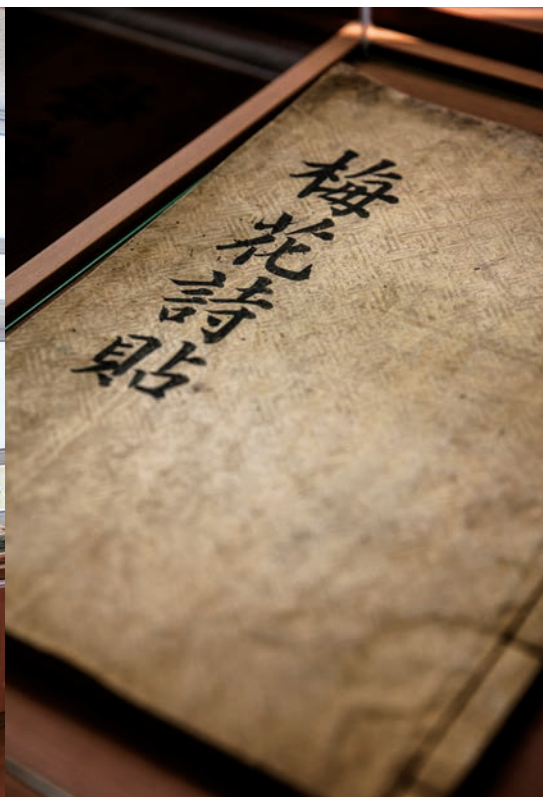 梅花詩貼